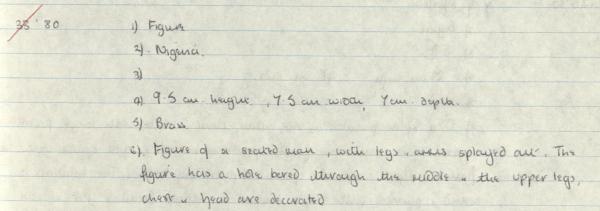 38 '80 1) Figure
2). Nigeria.
3)
4) 9.5 cm height, 7.5 cm width, 7 cm depth.
5) Brass
6). Figure of a seated man, with legs, arms splayed out. The
figure has a hole bored through the middle & the upper legs,
chest & head are decorated